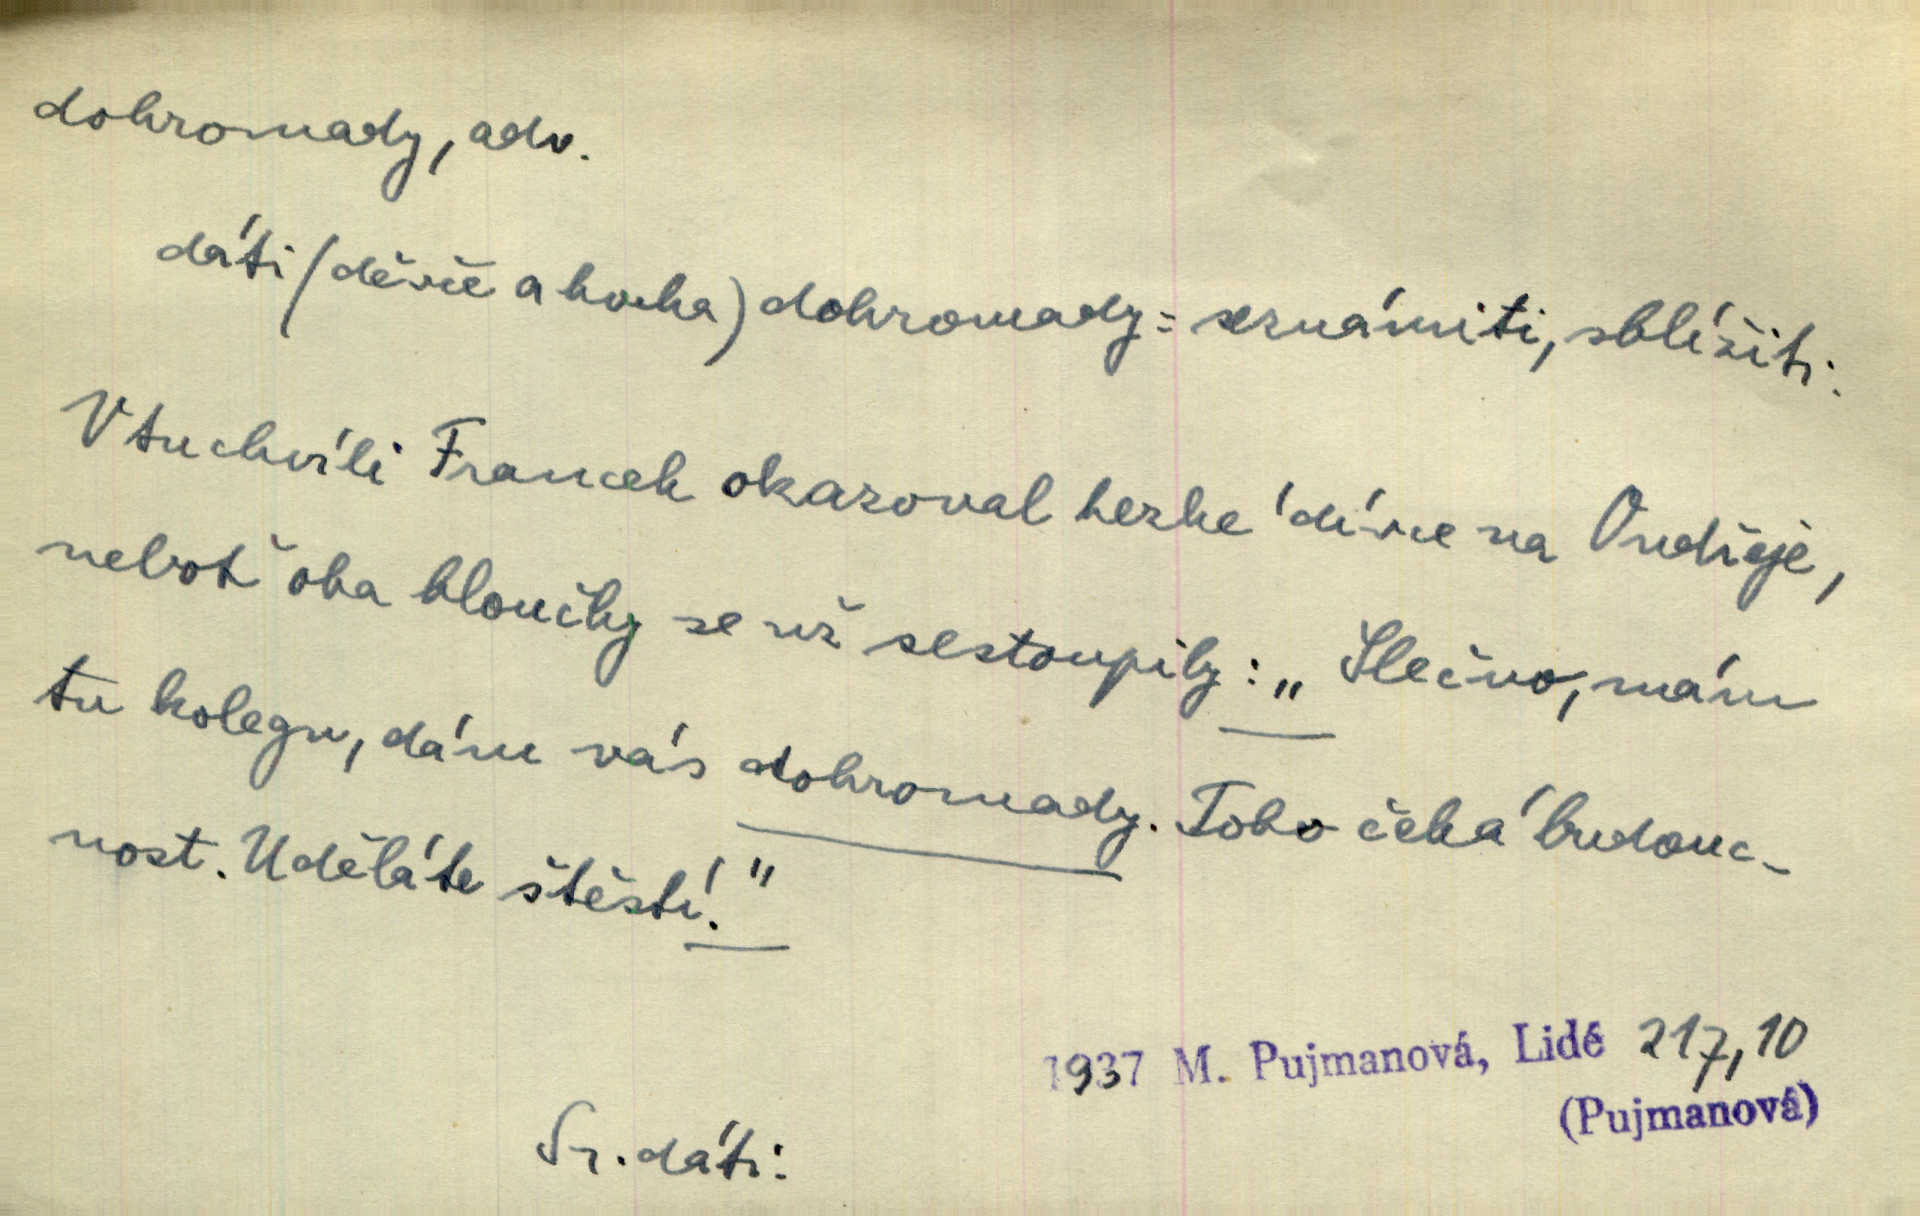 dohromady, adv.
dáti (děvče a hocha) dohromady = seznámiti, sblížiti:
V tu chvíli Francek okazoval hezké dívce na Ondřeje,
neboť oba hloučky se už sestoupily: „Slečno, mám
tu kolegu, dám vás dohromady. Toho čeká budouc-
nost. Uděláte štěstí."
1937 M. Pujmanová, Lidé 217,10
(Pujmanová)
Sr. dáti: